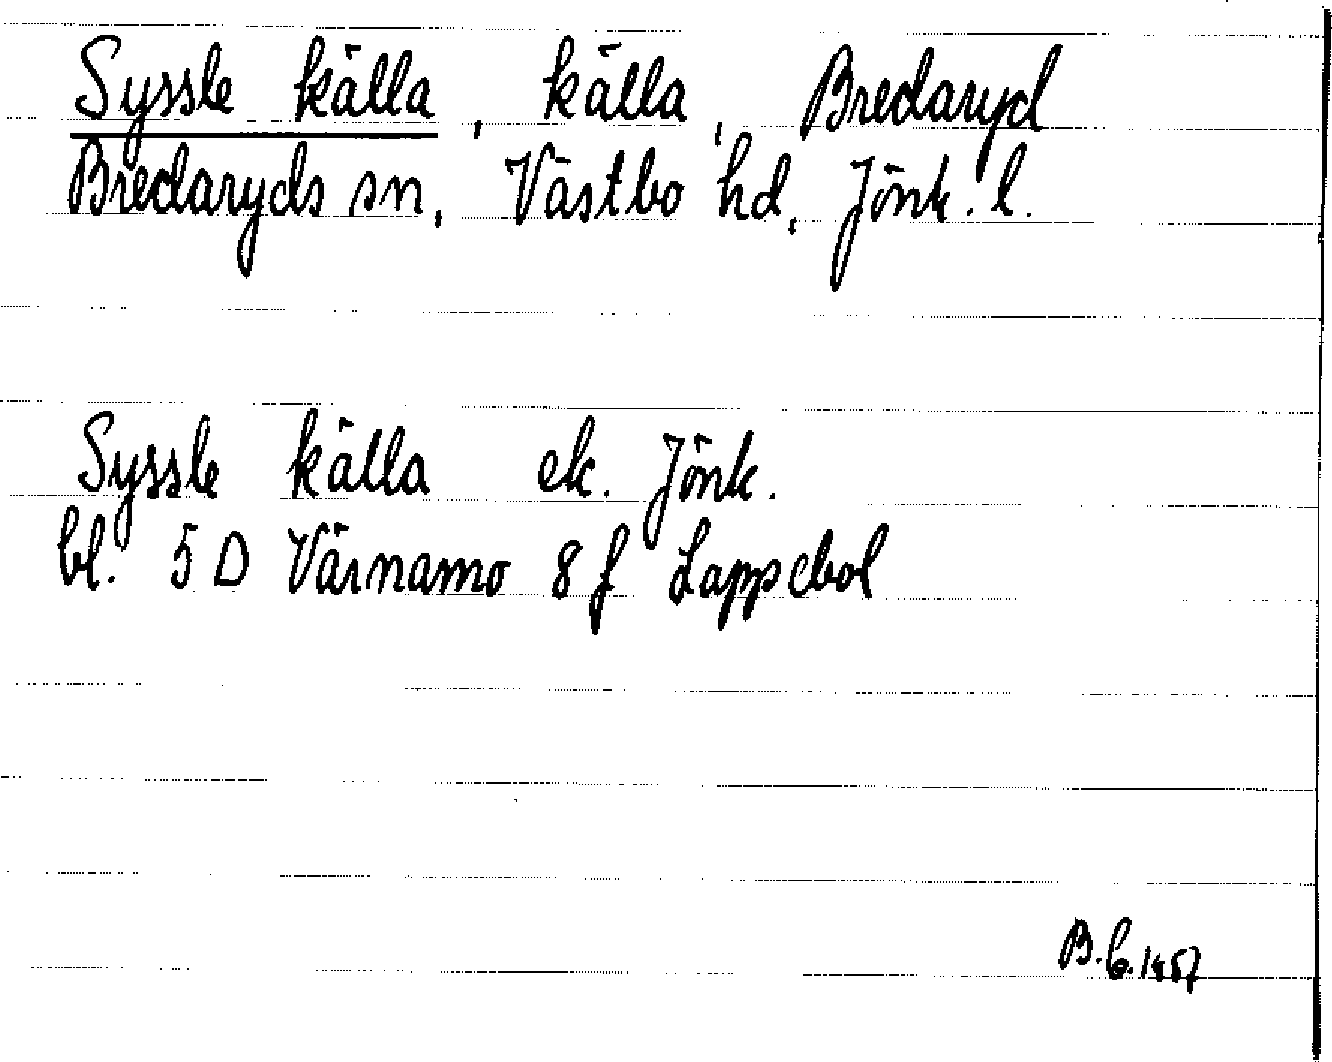 Syssle källa, källa, Bredaryd
Bredaryds sn, Västbo hd, Jönk. l.
Syssle källa ek. Jönk.
bl. 5 D Värnamo 8 f Lappebol
B.C. 1957